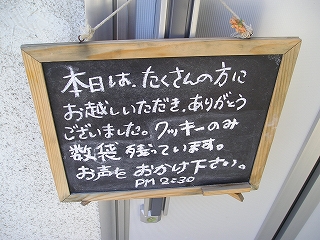 本日は、たくさんの方に
お越しいただき、ありがとう
ございました。クッキーのみ
数袋 残っています。
お声を おかけ下さい。
PM 2:30